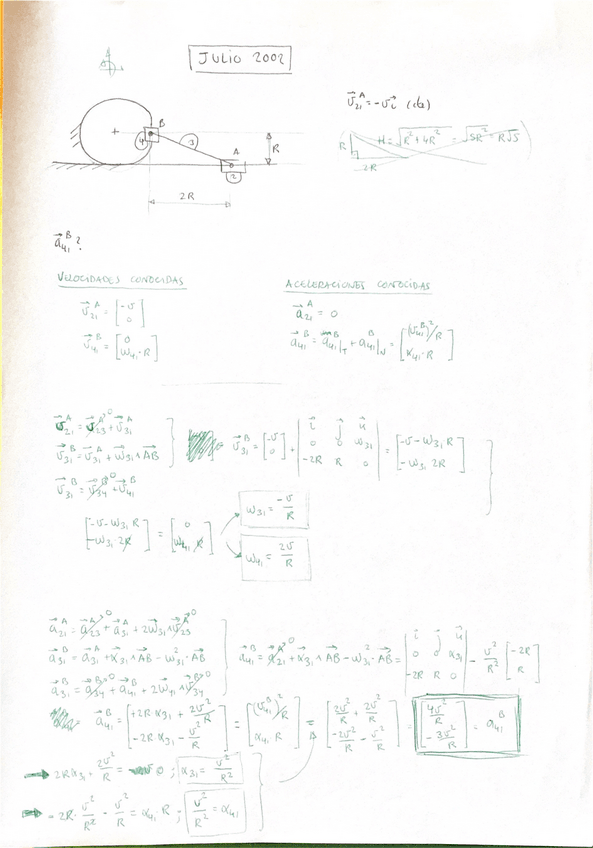 JULIO 2002
B
4
3
A
2
R
2R
v⃗₂₁ᴬ = -v i⃗ (cte)
R
2R
H = √(R² + 4R²) = √(5R²) = R√5
a⃗₄₁ᴮ ?
VELOCIDADES CONOCIDAS
v⃗₂₁ᴬ = [-v ; 0]
v⃗₄₁ᴮ = [0 ; ω₄₁·R]
ACELERACIONES CONOCIDAS
a⃗₂₁ᴬ = 0
a⃗₄₁ᴮ = a⃗₄₁ᴮ|T + a⃗₄₁ᴮ|N = [(v₄₁ᴮ)²/R ; α₄₁·R]
v⃗₂₁ᴬ = v⃗₂₃ᴬ⁰ + v⃗₃₁ᴬ
v⃗₃₁ᴮ = v⃗₃₁ᴬ + ω⃗₃₁ ∧ AB
v⃗₃₁ᴮ = v⃗₃₄ᴮ⁰ + v⃗₄₁ᴮ
v⃗₃₁ᴮ = [-v ; 0] + |i⃗ j⃗ k⃗ ; 0 0 ω₃₁ ; -2R R 0| = [-v - ω₃₁R ; -ω₃₁ 2R]
[-v - ω₃₁R ; -ω₃₁·2R] = [0 ; ω₄₁ R]
ω₃₁ = -v/R
ω₄₁ = 2v/R
a⃗₂₁ᴬ = a⃗₂₃ᴬ⁰ + a⃗₃₁ᴬ + 2ω⃗₃₁ ∧ v⃗₂₃⁰
a⃗₃₁ᴮ = a⃗₃₁ᴬ + α⃗₃₁ ∧ AB - ω²₃₁·AB
a⃗₃₁ᴮ = a⃗₃₄ᴮ⁰ + a⃗₄₁ᴮ + 2ω⃗₄₁ ∧ v⃗₃₄⁰
a⃗₄₁ᴮ = a⃗₂₁ᴬ⁰ + α⃗₃₁ ∧ AB - ω²₃₁·AB = |i⃗ j⃗ k⃗ ; 0 0 α₃₁ ; -2R R 0| - v²/R² [-2R ; R]
a⃗₄₁ᴮ = [+2R α₃₁ + 2v²/R ; -2R α₃₁ - v²/R] = [(v₄₁ᴮ)²/R ; α₄₁ R] = [2v²/R + 2v²/R ; -2v²/R - v²/R] = [4v²/R ; -3v²/R] = a₄₁ᴮ
2Rα₃₁ + 2v²/R = 0 ; α₃₁ = v²/R²
-2R·v²/R² - v²/R = α₄₁·R ; v²/R² = α₄₁